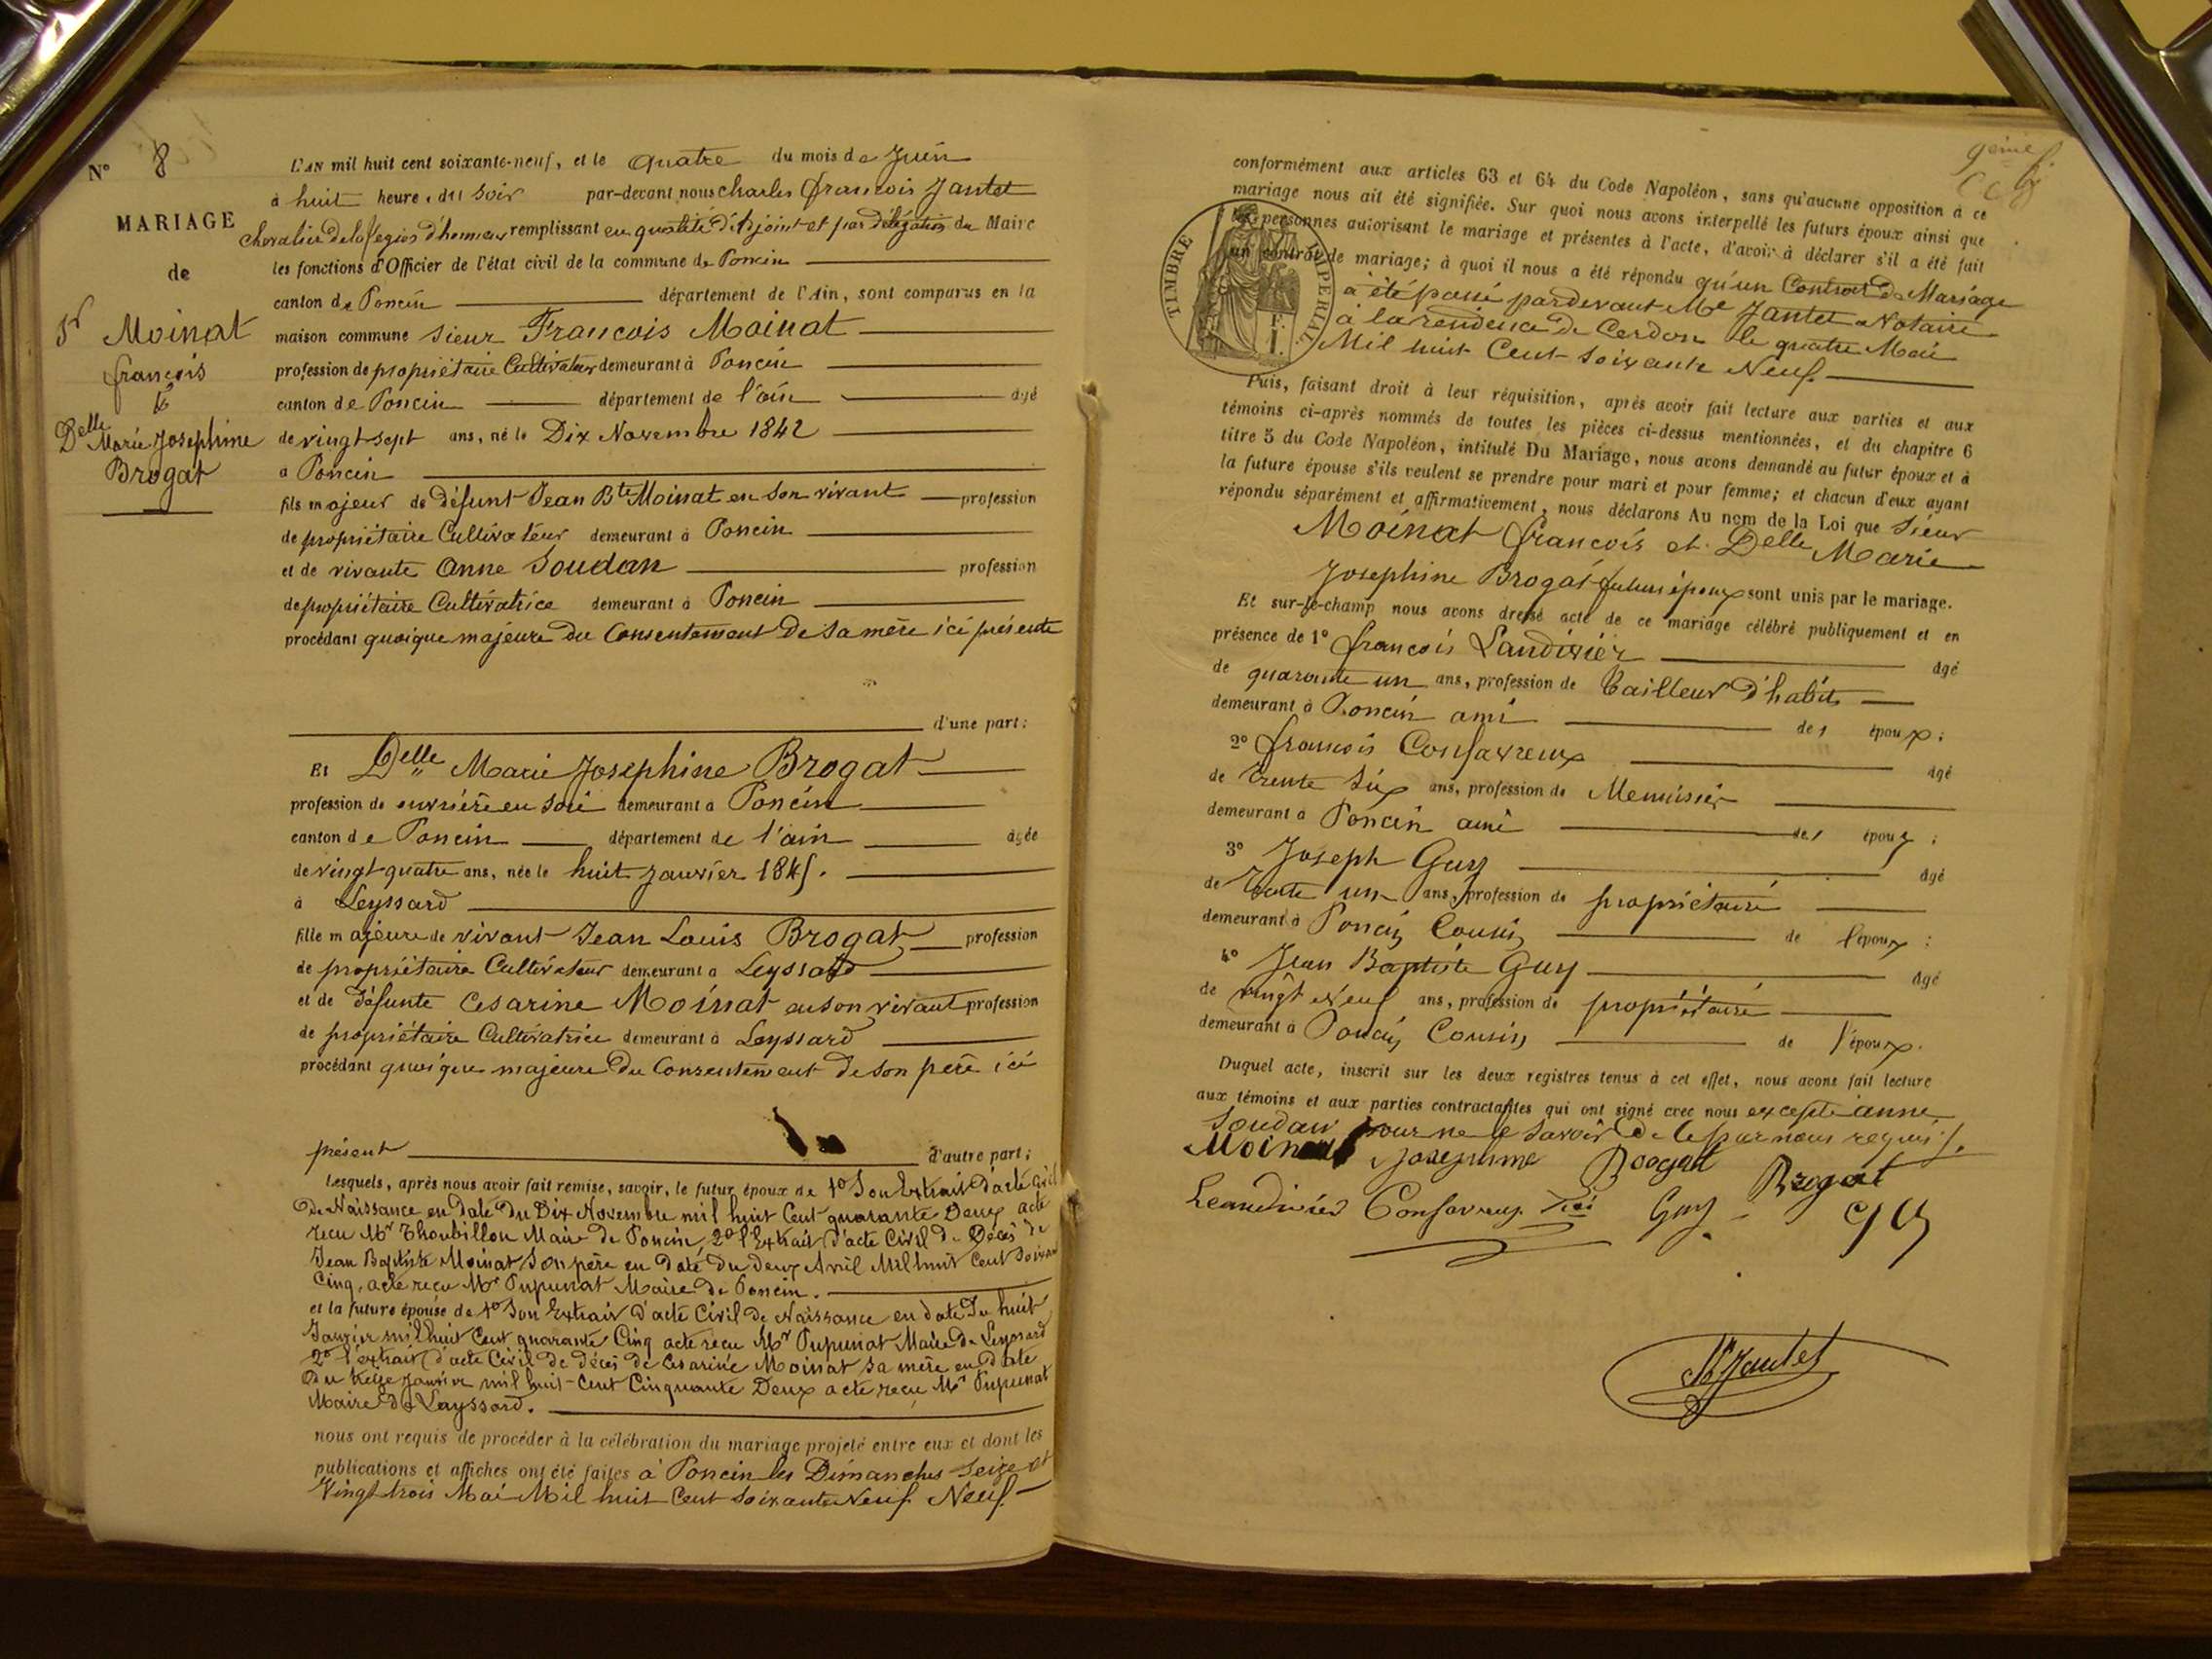 N° 8
MARIAGE
de
Sr Moinat
françois
&
Delle Marie Josephine
Brogat
L'AN mil huit cent soixante-neuf, et le quatre du mois de Juin
à huit heure, du soir par-devant nous charles françois Jantet
chevalier de la légion d'honneur remplissant en qualité d'Adjoint et par délégation du Maire
les fonctions d'Officier de l'état civil de la commune de Poncin
canton de Poncin département de l'Ain, sont comparus en la
maison commune sieur François Moinat
profession de propriétaire Cultivateur demeurant à Poncin
canton de Poncin département de l'ain âgé
de vingt sept ans, né le Dix Novembre 1842
à Poncin
fils majeur de défunt Jean Bte Moinat en son vivant profession
de propriétaire Cultivateur demeurant à Poncin
et de vivante Anne Soudan profession
de propriétaire Cultivatrice demeurant à Poncin
procédant quoique majeure du Consentement de sa mère ici présente
d'une part;
Et Delle Marie Josephine Brogat
profession de ouvrière en soie demeurant à Poncin
canton de Poncin département de l'ain âgée
de vingt quatre ans, née le huit janvier 1845.
à Leyssard
fille majeure de vivant Jean Louis Brogat profession
de propriétaire Cultivateur demeurant à Leyssard
et de défunte Cesarine Moinat en son vivant profession
de propriétaire Cultivatrice demeurant à Leyssard
procédant quoique majeure du Consentement de son père ici
présent d'autre part;
Lesquels, après nous avoir fait remise, savoir, le futur époux de 1° Son Extrait d'acte Civil
de Naissance en date du Dix Novembre mil huit Cent quarante Deux acte
recu Mr Thoubillon Maire de Poncin, 2° l'Extrait d'acte Civil de Décès de
Jean Baptiste Moinat Son père en date du deux Avril Mil huit Cent Soixante
Cinq, acte reçu Mr Pupunat Maire de Poncin.
et la future épouse de 1° Son Extrait d'acte Civil de Naissance en date du huit
Janvier mil huit Cent quarante Cinq acte recu Mr Pupunat Maire de Leyssard
2° l'extrait d'acte Civil de décès de Cesarine Moinat sa mère en date
du treize Janvier mil huit-Cent Cinquante Deux acte recu Mr Pupunat
Maire de Layssard.
nous ont requis de procéder à la célébration du mariage projeté entre eux et dont les
publications et affiches ont été faites à Poncin les Dimanches Seize et
Vingt trois Mai Mil huit Cent soixante Neuf Neuf
conformément aux articles 63 et 64 du Code Napoléon, sans qu'aucune opposition à ce
mariage nous ait été signifiée. Sur quoi nous avons interpellé les futurs époux ainsi que
les personnes autorisant le mariage et présentes à l'acte, d'avoir à déclarer s'il a été fait
un contrat de mariage; à quoi il nous a été répondu qu'un Contrat de Mariage
à été passé pardevant Me Jantet Notaire
à la residence de Cerdon le quatre Mai
Mil huit Cent soixante Neuf.
TIMBRE IMPERIAL
1 F.
Puis, faisant droit à leur réquisition, après avoir fait lecture aux parties et aux
témoins ci-après nommés de toutes les pièces ci-dessus mentionnées, et du chapitre 6
titre 5 du Code Napoléon, intitulé Du Mariage, nous avons demandé au futur époux et à
la future épouse s'ils veulent se prendre pour mari et pour femme; et chacun d'eux ayant
répondu séparément et affirmativement, nous déclarons Au nom de la Loi que sieur
Moinat françois et Delle Marie
Josephine Brogat futurs époux sont unis par le mariage.
Et sur-le-champ nous avons dressé acte de ce mariage célébré publiquement et en
présence de 1° françois Landivier âgé
de quarante un ans, profession de Tailleur d'habits
demeurant à Poncin ami des époux;
2° françois Confavreux âgé
de trente six ans, profession de Menuisier
demeurant à Poncin ami des époux;
3° Joseph Guy âgé
de trente un ans, profession de propriétaire
demeurant à Poncin Cousin de l'époux;
4° Jean Baptiste Guy âgé
de vingt Neuf ans, profession de propriétaire
demeurant à Poncin Cousin de l'époux.
Duquel acte, inscrit sur les deux registres tenus à cet effet, nous avons fait lecture
aux témoins et aux parties contractantes qui ont signé avec nous excepté anne
Soudan pour ne le savoir de ce par nous requis /.
Moinat Josephine Brogat Brogat
Leandivier Confavreux Guy
Jantet